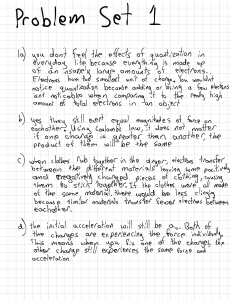 Problem Set 1
1a) you dont feel the effects of quantization in
everyday life because everything is made up
of an insanely large amounts of electrons.
Electrons have the smallest unit of charge. You wouldnt
notice quantization because adding or losing a few electrons
isnt noticable when comparing it to the really high
amount of total electrons in an object
b) yes they still exert equal magnitudes of force on
eachother. Using Coulombs law, it does not matter
if one charge is greater than another, the
product of them will be the same
c) when clothes rub together in the dryer, electrons transfer
between the different materials, leaving some positively
and negatively charged pieces of clothing, causing
them to stick together. If the clothes were all made
of the same material, there would be less clinging
because similar materials transfer fewer electrons between
eachother.
d) the initial acceleration will still be a0. Both of
the charges are experiencing the force individually.
This means when you fix one of the charges, the
other charge still experiences the same force and
acceleration